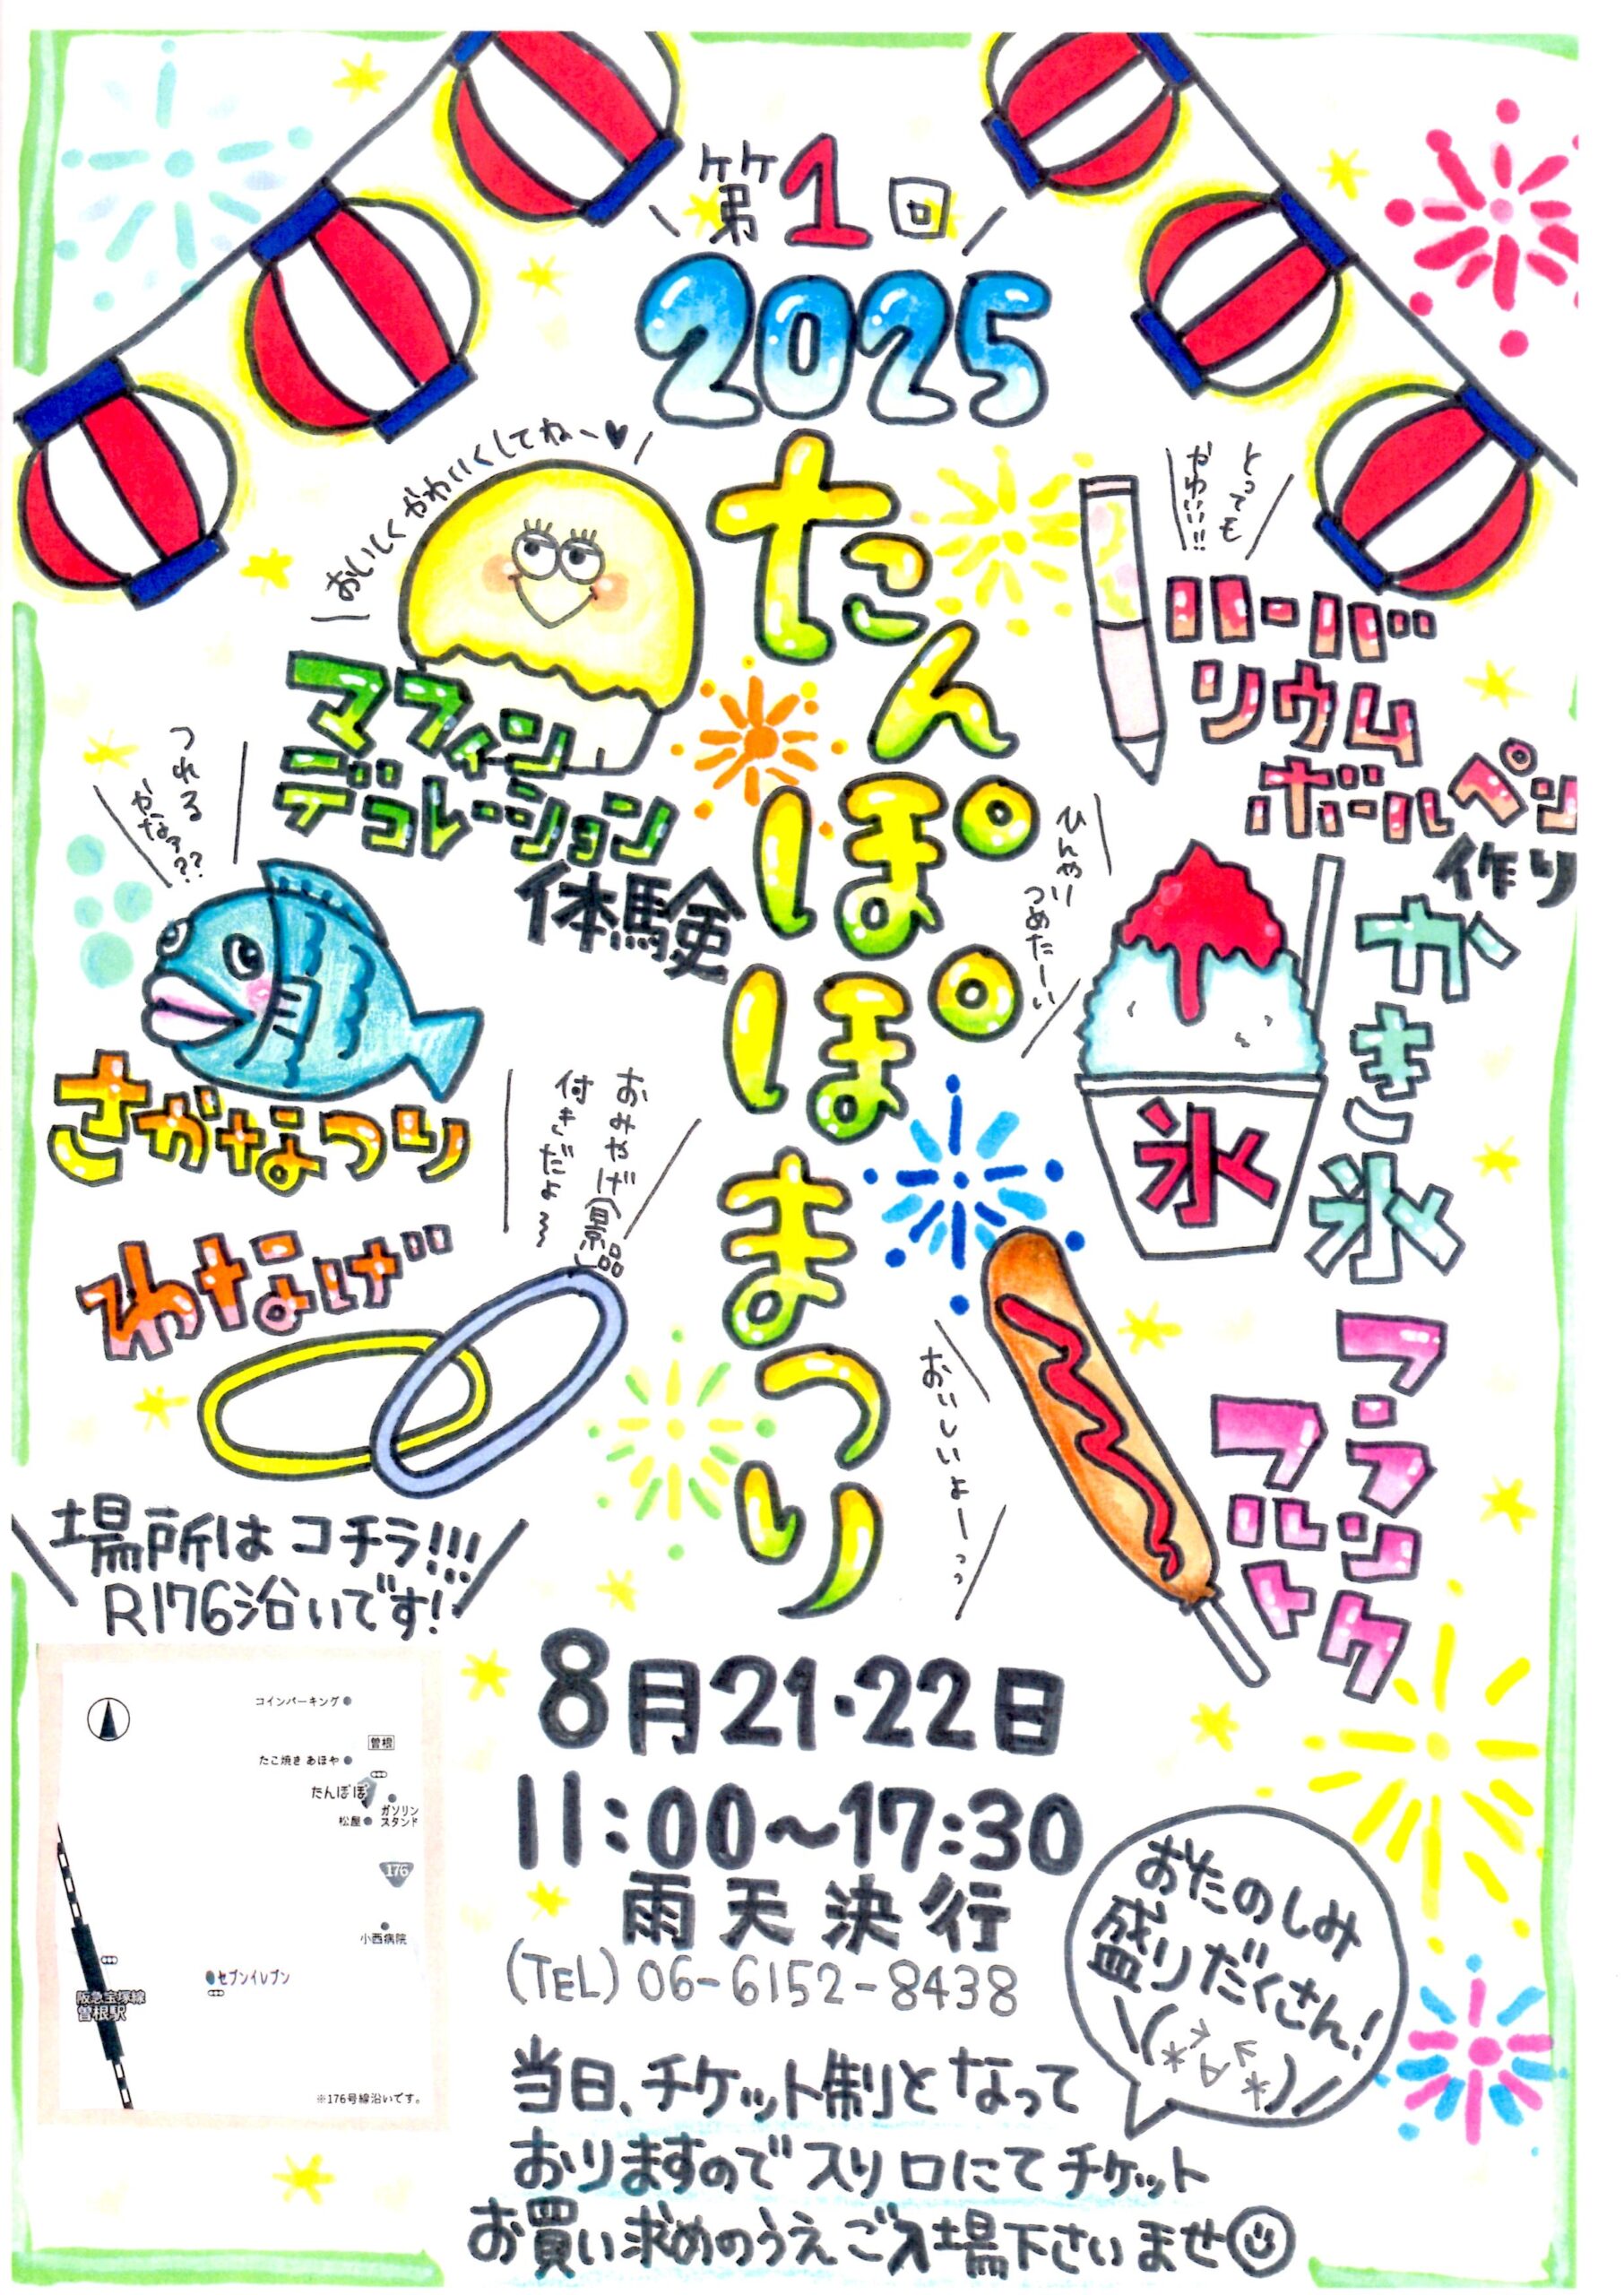 第1回
2025
たんぽぽまつり
おいしくかわいくしてねー♥
マフィン
デコレーション
体験
とっても
かわいい!!
ハーバ
リウム
ボールペン
作り
つれる
かなっ??
さかなつり
ひんやり
つめたーい
かき氷
氷
おみやげ(景品)
付きだよ〜〜
わなげ
おいしいよーっっ
フランク
フルト
場所はコチラ!!!
R176沿いです!!
コインパーキング
曽根
たこ焼き あほや
たんぽぽ
ガソリン
スタンド
松屋
176
小西病院
セブンイレブン
阪急宝塚線
曽根駅
※176号線沿いです。
8月21・22日
11:00〜17:30
雨天決行
(TEL) 06-6152-8438
おたのしみ
盛りだくさん!
\(*>∀<*)/
当日、チケット制となって
おりますので入り口にてチケット
お買い求めのうえご入場下さいませ☺